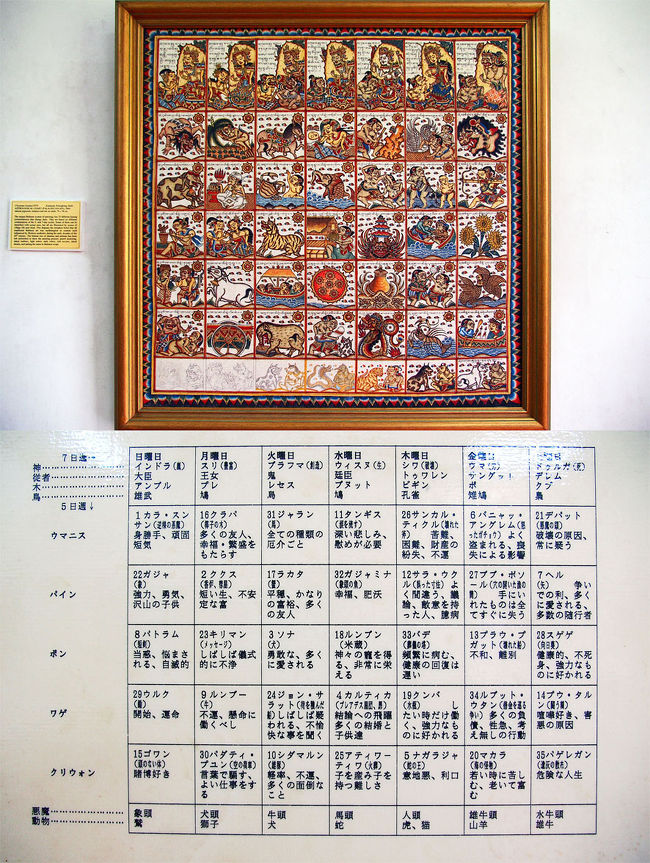 7日週→
神
従者
木
鳥
5日週↓
日曜日
インドラ(嵐)
大臣
アンプル
雄武
月曜日
スリ(豊富)
王女
プレ
鳩
火曜日
ブラフマ(創造)
鬼
レセス
烏
水曜日
ウィスヌ(生)
廷臣
プヌット
鳩
木曜日
シワ(破壊)
トゥワレン
ビギン
孔雀
金曜日
ウマ
サングット
ポ
雉鳩
曜日
ドゥルガ(死)
デレム
クプ
梟
ウマニス
1カラ・スン
サン(逆様の悪魔)
身勝手、頑固
短気
16クラパ
(椰子の木)
多くの友人、
幸福・繁盛を
もたらす
31ジャラン
(馬)
全ての種類の
厄介ごと
11タンギス
(涙を流す)
深い悲しみ、
慰めが必要
26サンカル・
ティクル(壊れた
苦難、
困難、財産の
紛失、不運
6バニャッ・
アングレム(怒
ったガチョウ) よく
盗まれる、喪
失による影響
21デパット
(悪魔の頭)
破壊の原因、
常に疑う
パイン
22ガジャ
(象)
強力、勇気、
沢山の子供
2ククス
短い生、不安
定な富
17ラカタ
(蟹)
平穏、かなり
の富裕、多く
の友人
32ガジャミナ
(象頭の魚)
幸福、肥沃
12サラ・ウク
ル(誤った寸法) よ
く間違う、議
論、敵意を持
った人、臆病
27ブブ・ボソ
ール(穴の開いた魚の
罠) 手にい
れたものは全
てすぐに失う
7ヘル
(矢) 争い
での利、多く
に愛される、
多数の随行者
ポン
8パトラム
当惑、悩まさ
れる、自滅的
23キリマン
(メッセージ)
しばしば儀式
的に不浄
3ソナ
(犬)
勇敢な、多く
に愛される
18ルンブン
(米蔵)
神々の寵を得
る、非常に栄
える
33パデ
頻繁に病む、
健康の回復は
遅い
13プラウ・プ
ガット(壊れた船)
不和、離別
28スゲゲ
(向日葵)
健康的、不死
身、強力なも
のに好かれる
ワゲ
29ウルク
開始、運命
9ルンブー
(牛)
不運、懸命に
働くべし
24ジョン・サ
ラット(荷を積んだ
船)しばしば疑
われる、不愉
快な事を聞く
4カルティカ
(プレアデス星団、昴)
結論への飛躍
多くの結婚と
子供達
19クンバ
(水瓶) し
たい時だけ働
く、強力なも
のに好かれる
34ルプット・
ウタン(借金を巡る
争い) 多くの負
債、性急、考
え無しの行動
14プウ・タル
ン(闘う鶉)
喧嘩好き、害
悪の原因
クリウォン
15ゴワン
(頭のない体)
賭博好き
30パダティ・
プユン(空の荷車)
言葉で騙す、
よい仕事をす
る
10シダマルン
軽率、不運、
多くの面倒な
こと
25アティワー
ティワ(火葬)
子を産み子を
持つ難しさ
5ナガラジャ
(蛇の王)
意地悪、利口
20マカラ
(海の怪物)
若い時に苦し
む、老いて富
む
35パゲレガン
危険な人生
悪魔
動物
象頭
鷲
犬頭
獅子
牛頭
犬
馬頭
蛇
人頭
虎、猫
雄牛頭
山羊
水牛頭
雄牛